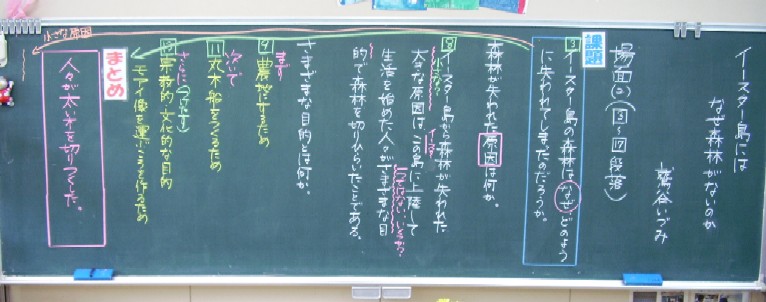 イースター島には
なぜ森林がないのか
鷲谷いづみ
場面(2)(3〜四段落)
課題
3イースター島の森林は、なぜ、どのよう
に失われてしまったのだろうか。
森林が失われた原因は何か。
8イースター島から森林が失われた
大きな原因は、この島に上陸して
生活を始めた人々が、さまざまな目
的で森林を切りひらいたことである。
さまざまな目的とは何か。
まず
9農地にするため
次いで
11丸木船をつくるため
さらに
宗教的・文化的な目的
モアイ像を運ぶころを作るため
まとめ
人々が太い木を切りつくした。
小さな原因